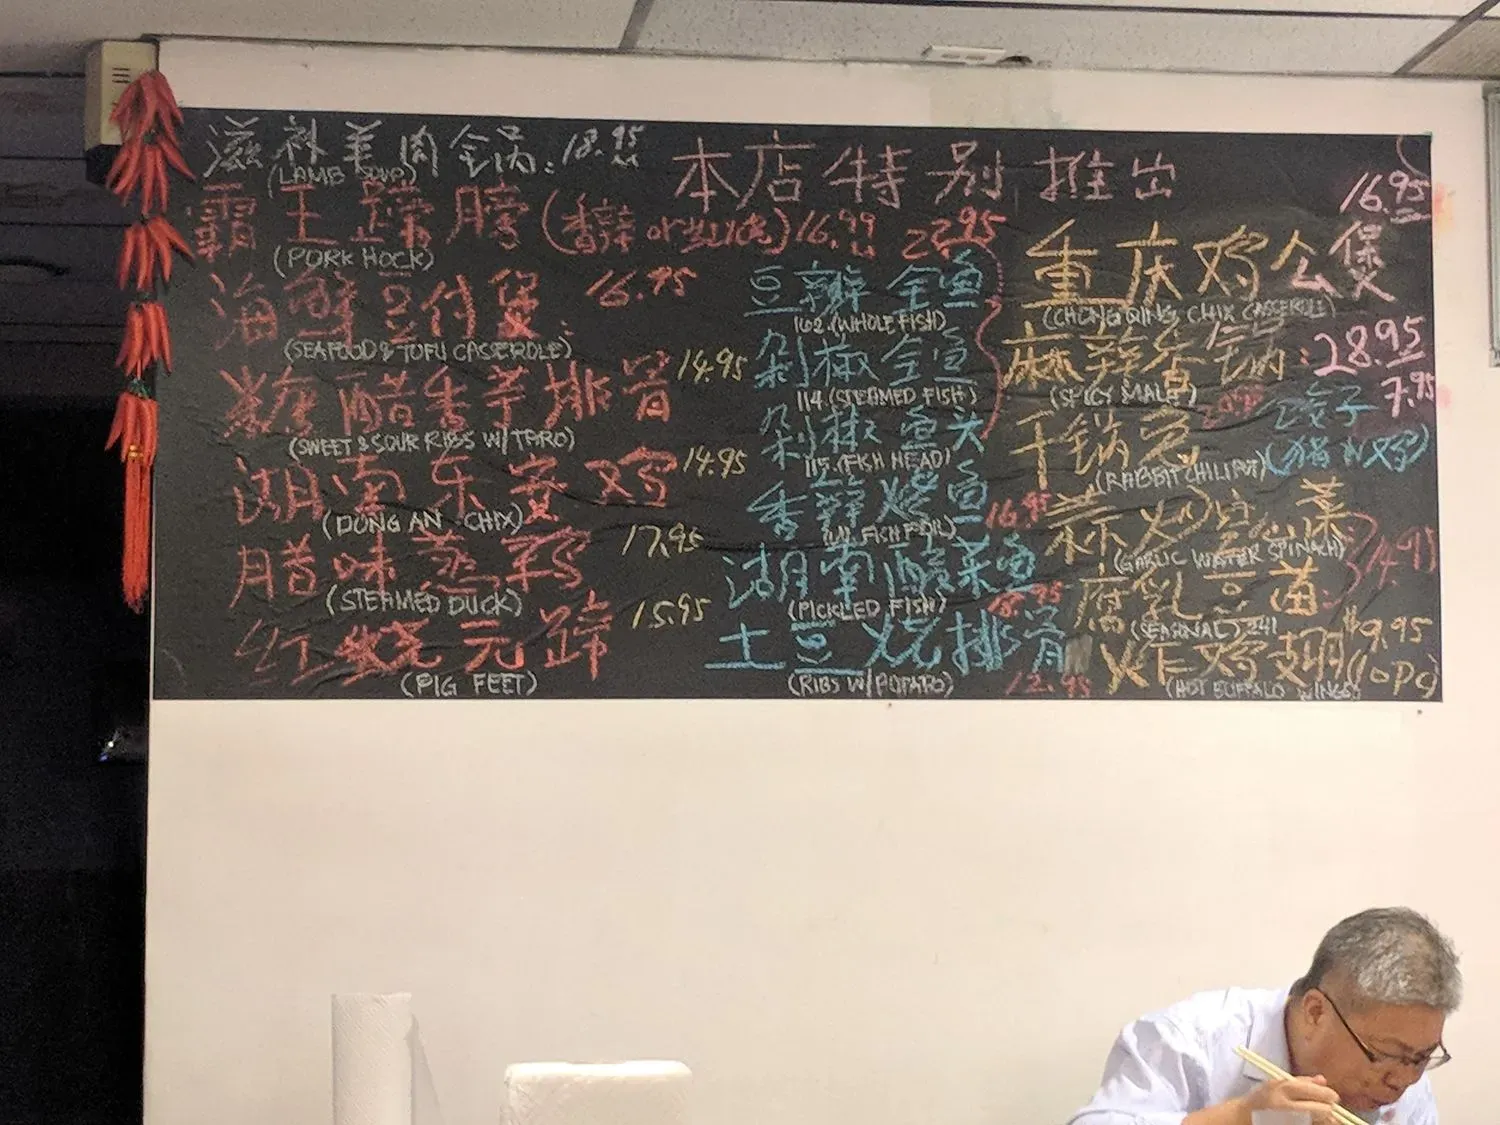 本店特别推出
滋补羊肉全锅:18.95
(LAMB SOUP)
霸王蹄膀(香辣or红烧)16.99
(PORK HOCK)
海鲜豆付煲: 16.95
(SEAFOOD & TOFU CASSEROLE)
糖醋香芋排骨 14.95
(SWEET & SOUR RIBS W/TARO)
湖南东安鸡 14.95
(DONG AN CHIX)
腊味蒸鸭 17.95
(STEAMED DUCK)
红烧元蹄 15.95
(PIG FEET)
22.95
豆瓣全鱼
162.(WHOLE FISH)
剁椒全鱼
114.(STEAMED FISH)
剁椒鱼头
115.(FISH HEAD)
香辣烤鱼 16.95
湖南酸菜鱼 18.95
(PICKLED FISH)
土豆烧排骨 12.95
(RIBS W/POTATO)
16.95
重庆鸡公煲
(CHONG QING CHIX CASSEROLE)
麻辣香锅:28.95
(SPICY MALA)
7.95
饺子
干锅兔
(RABBIT CHILI POT)
蒜炒空心菜
(GARLIC WATER SPINACH)
腐乳豆苗 14.95
(SEASINAL) 241
炸鸡翅 $9.95
(10PC)
(HOT BUFFALO WINGS)